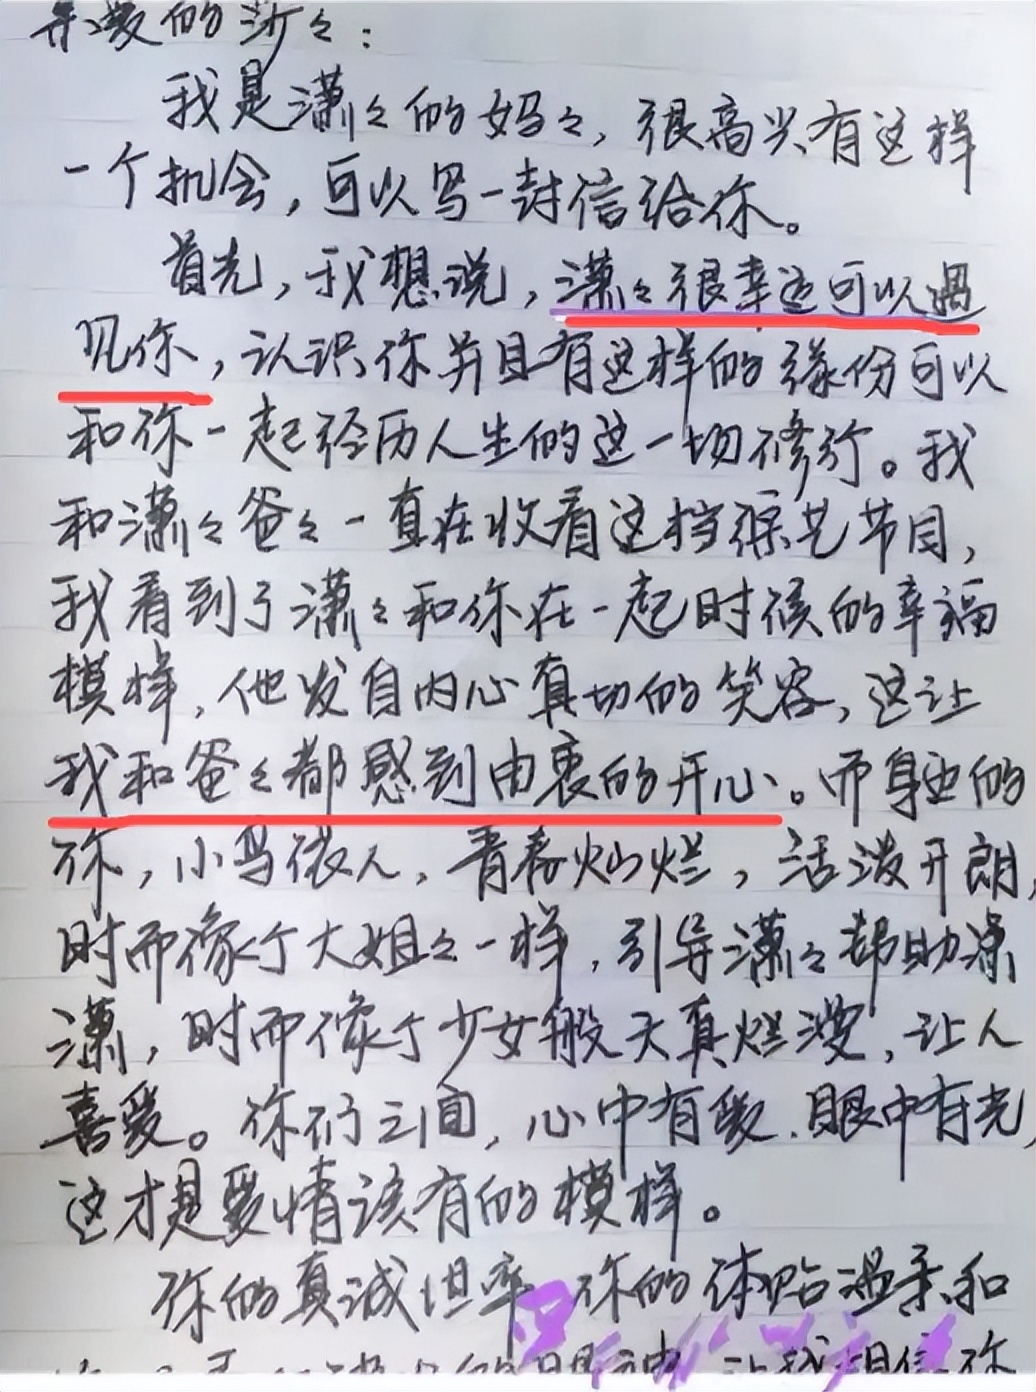 亲爱的沙々：
我是潇々的妈々，很高兴有这样
一个机会，可以写一封信给你。
首先，我想说，潇々很幸运可以遇
见你，认识你并且有这样的缘份可以
和你一起经历人生的这一切修行。我
和潇々爸々一直在收看这档综艺节目，
我看到了潇々和你在一起时候的幸福
模样，他发自内心真切的笑容，这让
我和爸々都感到由衷的开心。而身边的
你，小鸟依人，青春灿烂，活泼开朗，
时而像个大姐々一样，引导潇々帮助潇
潇，时而像个少女般天真烂漫，让人
喜爱。你们之间，心中有爱、眼中有光，
这才是爱情该有的模样。
你的真诚坦率 你的体贴温柔和
让我相信你